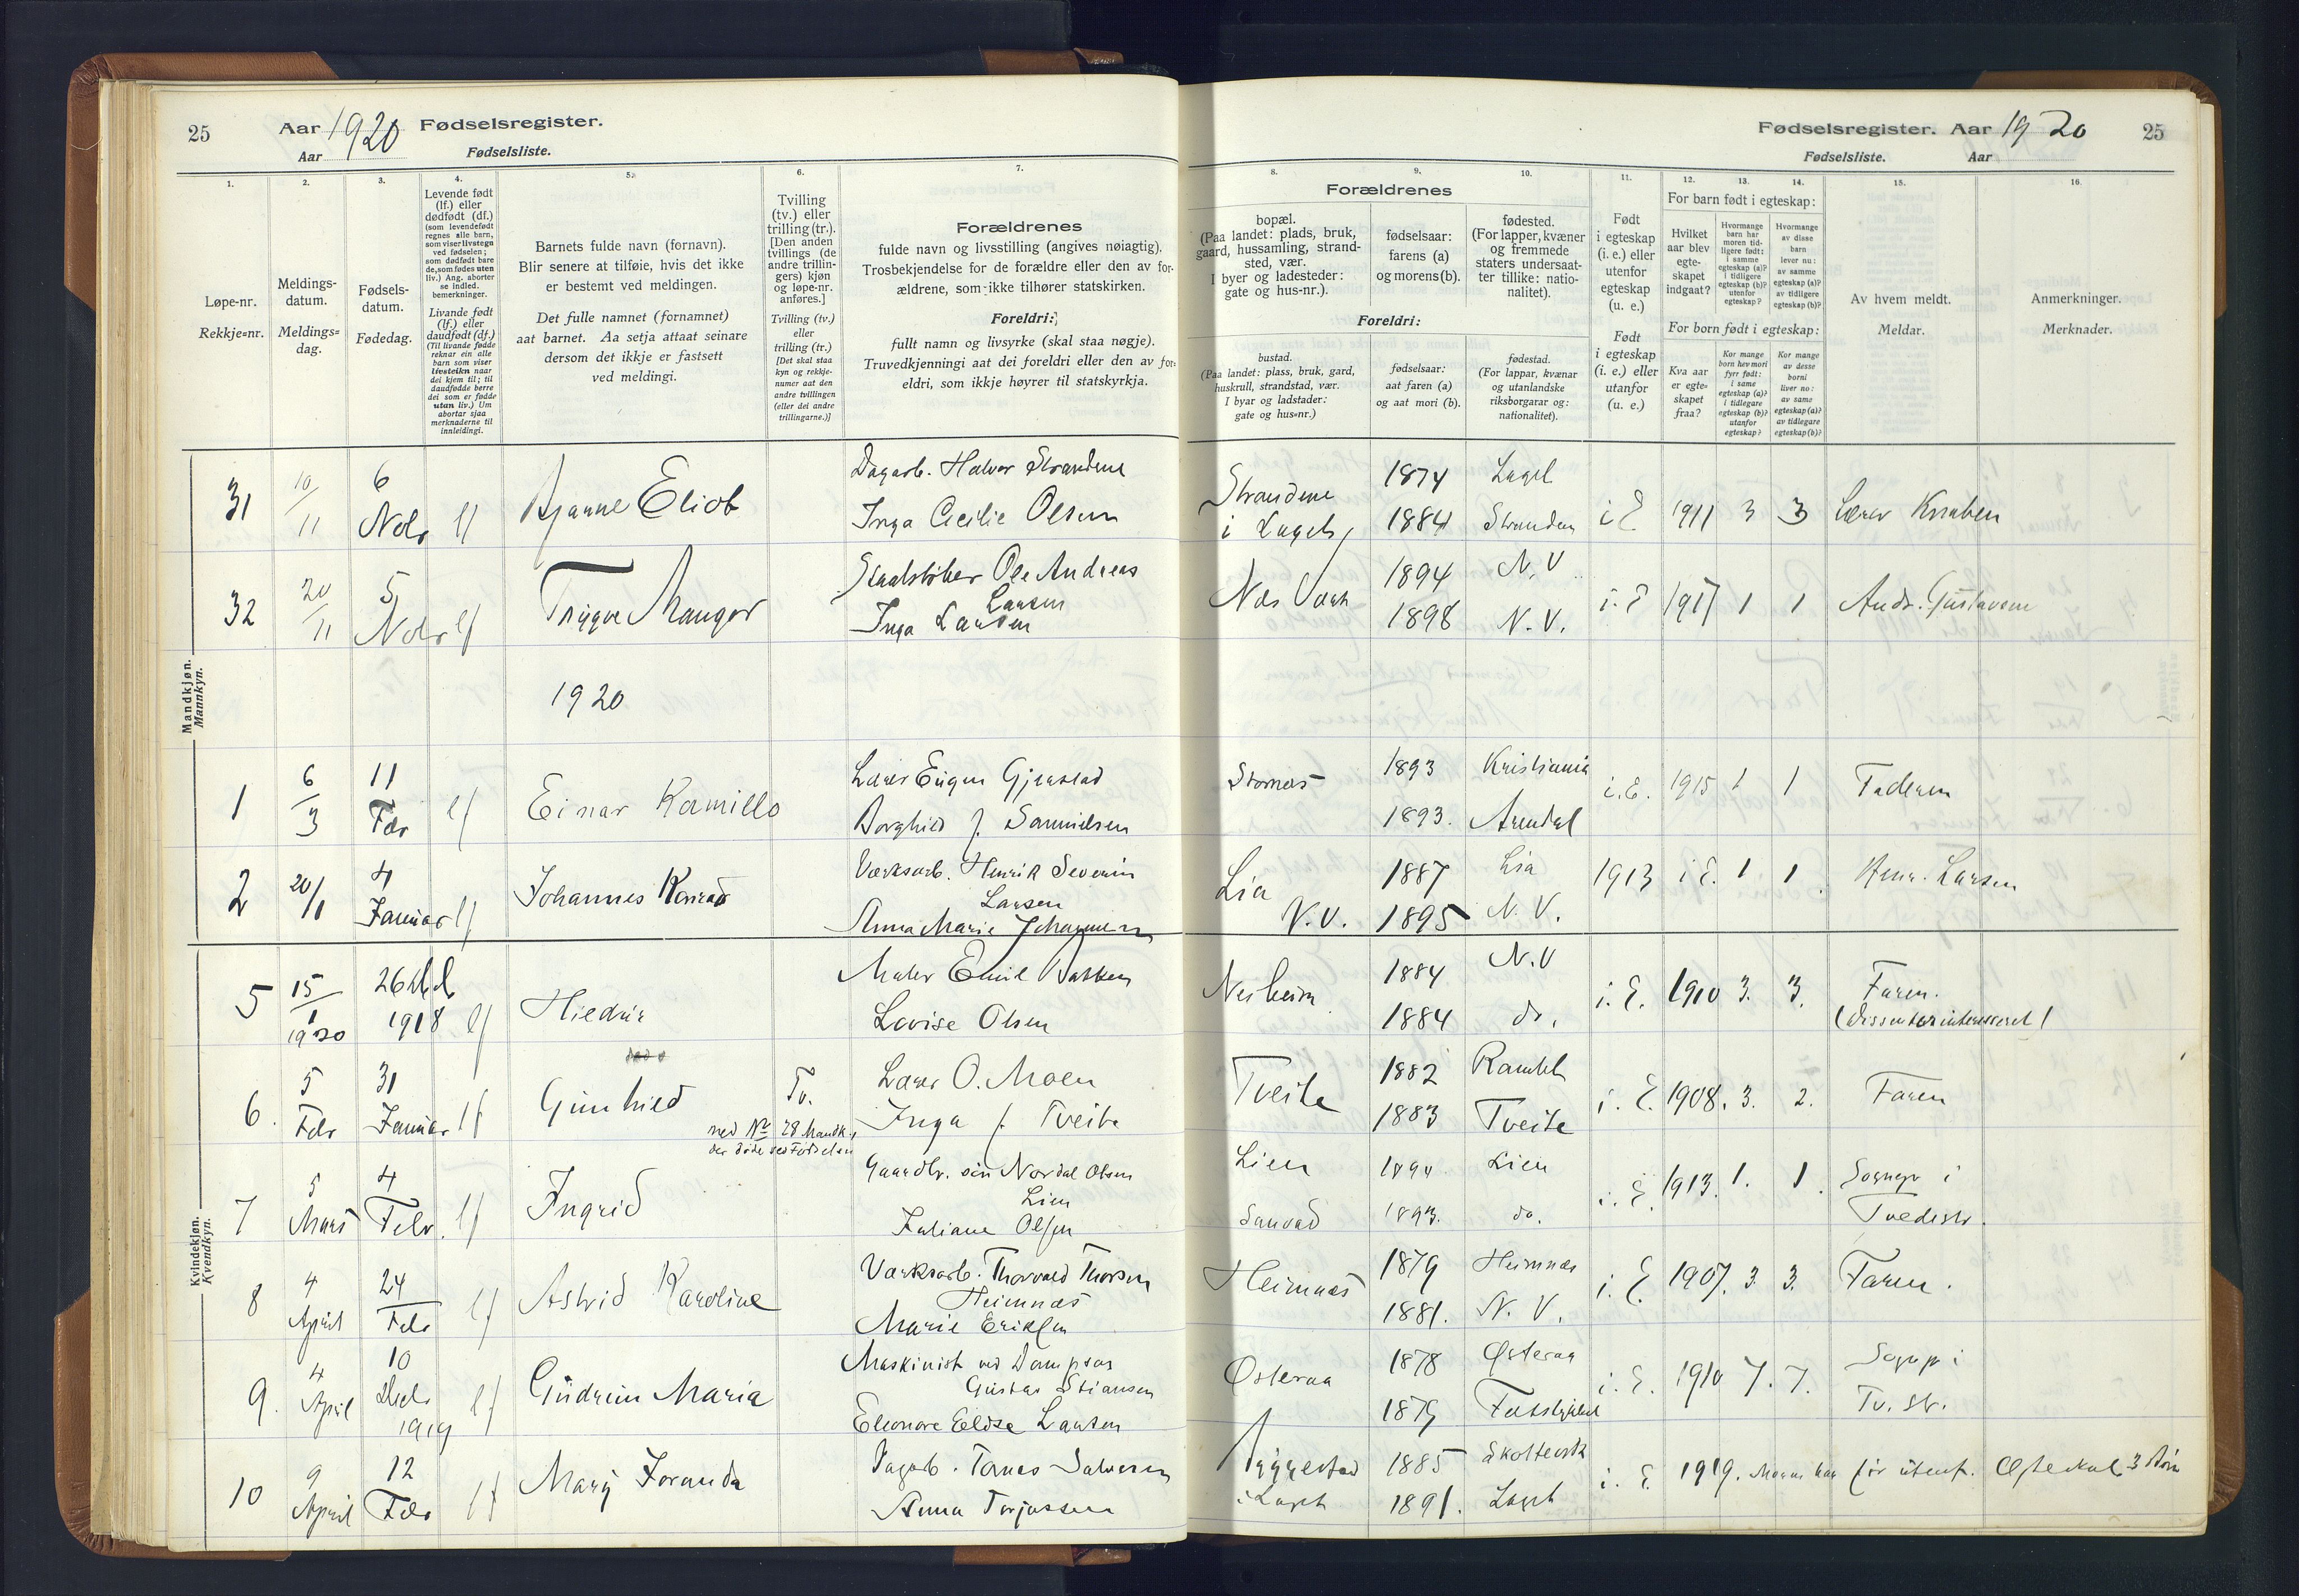 25 Aar 1920 Fødselsregister.
Aar Fødselsliste.
1. 2. 3. 4. 5. 6. 7.
Løpe-nr.
Rekkje-nr.
Meldings-
datum.
Meldings-
dag.
Fødsels-
datum.
Fødedag.
Levende født
(lf.) eller
dødfødt (df.)
(som levendefødt
regnes alle barn,
som viser livstegn
ved fødselen;
som dødfødt bare
de, som fødes uten
liv.) Ang. aborter
se indled.
bemerkninger.
Livande født
(lf.) eller
daudfødt (df.)
(Til livande fødde
reknar ein alle
barn som viser
livsteikn naar
dei kjem til; til
daudfødde berre
dei som er fødde
utan liv.) Um
abortar sjaa
merknaderne til
innleidingi.
Barnets fulde navn (fornavn).
Blir senere at tilføie, hvis det ikke
er bestemt ved meldingen.
Det fulle namnet (fornamnet)
aat barnet. Aa setja attaat seinare
dersom det ikkje er fastsett
ved meldingi.
Tvilling
(tv.) eller
trilling (tr.).
[Den anden
tvillings (de
andre trillin-
gers) kjøn
og løpe-nr.
anføres.]
Tvilling (tv.)
eller
trilling (tr.)
[Det skal staa
kyn og rekkje-
numer aat den
andre tvillingen
(eller dei andre
trillingarne.)]
Forældrenes
fulde navn og livsstilling (angives nøiagtig).
Trosbekjendelse for de forældre eller den av for-
ældrene, som ikke tilhører statskirken.
Foreldri:
fullt namn og livsyrke (skal staa nøgje).
Truvedkjenningi aat dei foreldri eller den av for-
eldri, som ikkje høyrer til statskyrkja.
Mandkjøn.
Mannkyn.
31 10/11 6 Nobr lf Bjarne Eliot Dagarb. Halvor Strandene
Inga Cecilie Olsen
32 20/11 5 Nobr lf Trygve Mangor Ole Andreas
Larsen
Inga Larsen
1920
1 6/3 11 Febr lf Einar Kamillo Lærer Eugen Gjersstad
Borghild f. Samuelsen
2 20/1 4 Januar lf Johannes Konrad Verksarb. Henrik Severin
Larsen
Anna Marie Johannesen
Kvindekjøn.
Kvendkyn.
5 15/1 1920 26 1918 lf Maler Emil Bakken
Lovise Olsen
6. 5 Febr 31 Januar lf Gunhild Tv. Lærer O. Moen
med No 28 Mandk.,
der døde ved Fødselen
Inga f. Tveite
7 5 Mars 4 Febr. lf Ingrid Gaardbr. søn Nordal Olsen
Lien
Juliane Olsen
8 4 April 24 Febr lf Astrid Karoline Verksarb. Thorvald Thorsen
Heimnæs
Marie Eriksen
9. 4 April 10 1919 lf Gudrun Maria Maskinist ved Dampsag
Gustav Stiansen
Eleonore Elise Larsen
10 9 April 12 Febr lf Mary Joranda Dagarb. Tomas Salvesen
Anna Torjussen
Fødselsregister. Aar 1920 25
Fødselsliste. Aar
8. 9. 10. 11. 12. 13. 14. 15. 16.
Forældrenes
bopæl.
(Paa landet: plads, bruk,
gaard, hussamling, strand-
sted, vær.
I byer og ladesteder:
gate og hus-nr.).
fødselsaar:
farens (a)
og morens (b).
fødested.
(For lapper, kvæner
og fremmede
staters undersaat-
ter tillike: natio-
nalitet).
Foreldri:
bustad.
(Paa landet: plass, bruk, gard,
huskrull, strandstad, vær.
I byar og ladstader:
gate og hus-nr.)
fødselsaar:
aat faren (a)
og aat mori (b).
fødestad.
(For lappar, kvænar
og utanlandske
riksborgarar og:
nationalitet).
Født
i egteskap
(i. e.) eller
utenfor
egteskap
(u. e.)
Født
i egteskap
(i. e.) eller
utanfor
(u. e.)
For barn født i egteskap:
Hvilket
aar blev
egte-
skapet
indgaat?
Hvormange
barn har
moren tid-
ligere født:
i samme
egteskap (a)?
i tidligere
egteskap (b)?
utenfor
egteskap?
Hvormange
av disse
barn
lever nu:
av samme
egteskap (a)?
av tidligere
egteskap (b)?
For born født i egteskap:
Kva aar
er egte-
skapet
fraa?
Kor mange
born hev mori
fyrr født:
i same
egteskap (a)?
i tidlegare
egteskap (b)?
utanfor
egteskap?
Kor mange
av desse
borni
liver no:
av same
egteskap (a)?
av tidlegare
egteskap (b)?
Av hvem meldt.
Meldar.
Anmerkninger.
Merknader.
Strandene 1874 Laget
i Laget 1884 Stranden i E 1911 3 3 Lærer Knaben
Næs Verk 1894 N.V
1898 N.V. i. E 1917 1 1 Andr. Gustavsen
Stornæs 1893 Kristiania
1893. Arendal i.E. 1915 1 1 Faderen
Lia 1887 Lia 1913 i E. 1 1. Henr. Larsen
N.V. 1895 N.V.
Nesheim 1884 N.V
1884 do. i. E. 1910 3. 3. Faren.
(Dissenterinteresseret)
Tveite 1882
1883 Tveite i. E. 1908. 3. 2. Faren
Lien Lien
1893. do. i. E. 1913. 1. 1. Sognepr i
Tvedestr.
Heimnæs 1879 Heimnæs
1881. N. V. i. E. 1907. 3. 3. Faren.
Østeraa 1878 Østeraa
1879 i. E. 1910 7. 7. Sognepr i
Tv. str.
i Laget 1885
1891. Laget i. E. 1919. Moren har før utenf. Egteskab 3 Børn